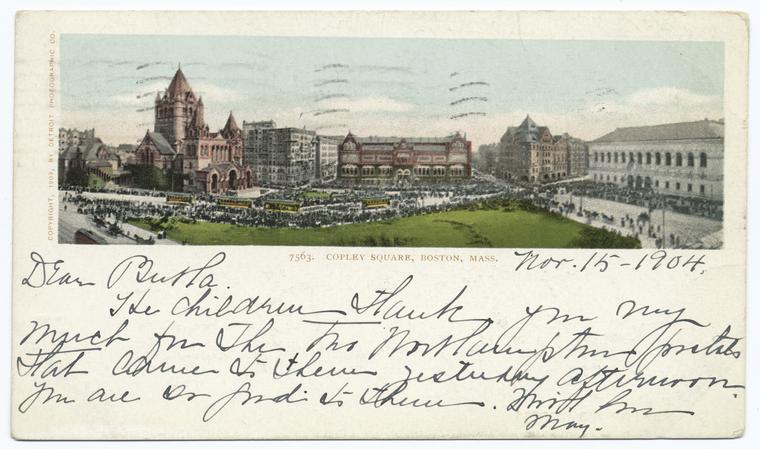 COPYRIGHT, 1903, BY DETROIT PHOTOGRAPHIC CO.
7563. COPLEY SQUARE, BOSTON, MASS.
Nov. 15-1904.
Dear
The children thank you very
much for the two Northampton postals
that came to them yesterday afternoon.
You are so good to them. With love
May.